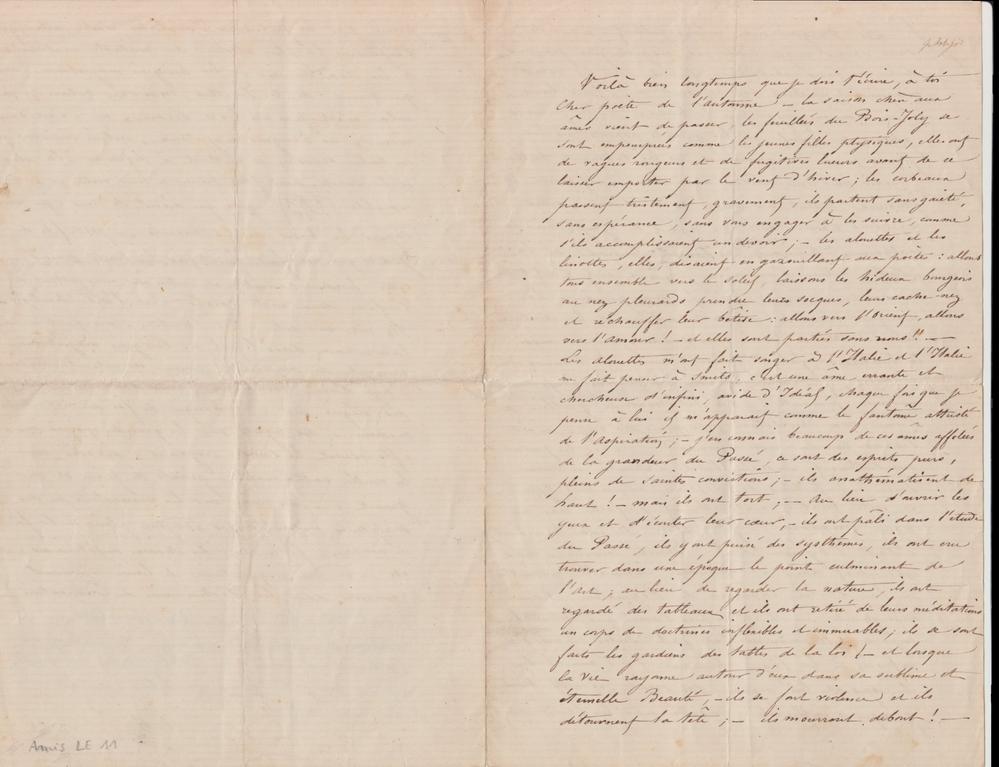 Voilà bien longtemps que je dois t'écrire, à toi
cher poète de l'automne — la saison chère aux
âmes vient de passer, les feuilles du Bois-Joly se
sont empourprées comme les jeunes filles phtysiques, elles ont
de vagues rougeurs et de fugitives lueurs avant de ce
laisser emporter par le vent d'hiver ; les corbeaux
passent tristement, gravement, ils partent sans gaieté,
sans espérance, sans vous engager à les suivre, comme
s'ils accomplissaient un devoir ; — les alouettes et les
linottes, elles, disaient en gazouillant aux poète : allons
tous ensemble vers le soleil, laissons les hideux bourgeois
au nez pleurards prendre leurs socques, leurs cache-nez
et réchauffer leur bêtise : allons vers l'Orient, allons
vers l'amour ! — et elles sont parties sans nous !! —
Les alouettes m'ont fait songer à l'Italie et l'Italie
me fait penser à Smits, c'est une âme errante et
chercheuse d'infini, avide d'Idéal, chaque fois que je
pense à lui il m'apparait comme le fantôme attristé
de l'Aspiration ; — j'en connais beaucoup de ces âmes affolées
de la grandeur du Passé, ce sont des esprits purs,
pleins de saintes convictions ; — ils anathématisent de
haut ! — mais ils ont tort ; — Au lieu d'ouvrir les
yeux et d'écouter leur cœur, — ils ont pâli dans l'étude
du Passé, ils y ont puisé des systhèmes, ils ont cru
trouver dans une époque le point culminant de
l'art ; au lieu de regarder la nature, ils ont
regardé des tableaux, et ils ont retiré de leurs méditations
un corps de doctrines inflexibles et immuables ; ils se sont
faits les gardiens des tables de la loi ! — et lorsque
la vie rayonne autour d'eux dans sa sublime et
éternelle Beauté, — ils se font violence et ils
détournent la tête ; — ils mourront debout ! —
Amis LE 11